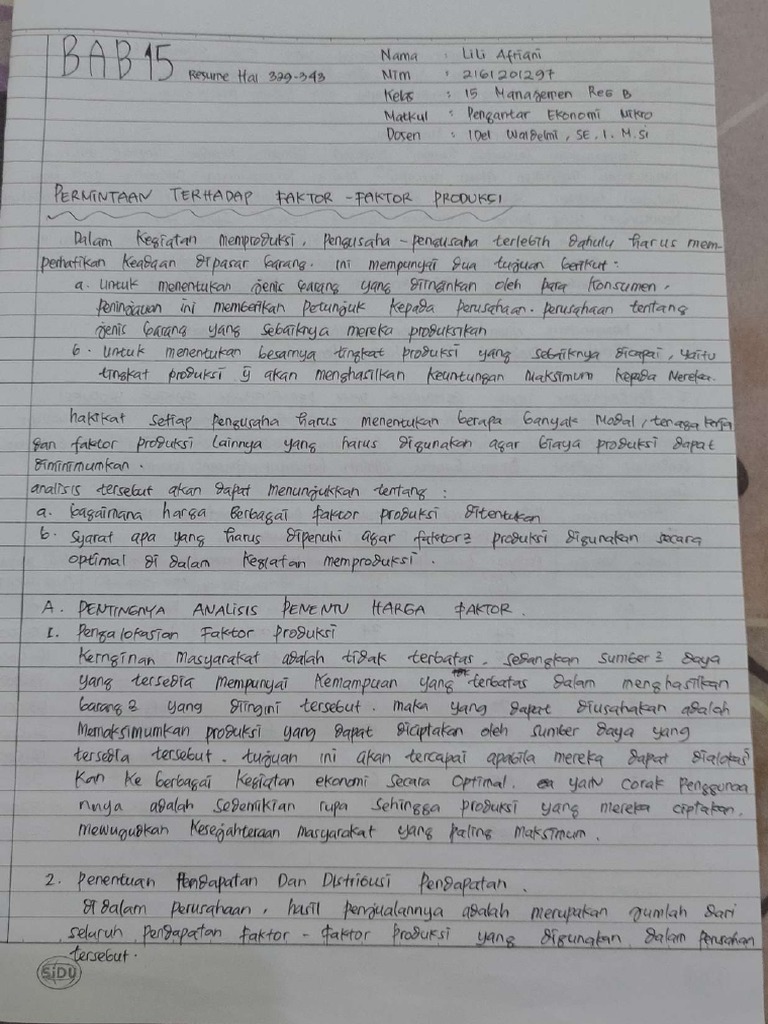 BAB 15 Resume Hal 329-343
Nama : Lili Afriani
Nim : 2161201297
Kelas : 15 Managemen Reg B
Matkul : Pengantar Ekonomi Mikro
Dosen : Idel Waldelmi, SE. I. M.Si
PERMINTAAN TERHADAP FAKTOR-FAKTOR PRODUKSI
Dalam Kegiatan memproduksi, Pengusaha-pengusaha terlebih dahulu harus mem-
perhatikan Keadaan dipasar barang. ini mempunyai dua tujuan berikut :
a. untuk menentukan jenis barang yang diinginkan oleh para konsumen.
peninjauan ini memberikan petunjuk kepada perusahaan-perusahaan tentang
jenis barang yang sebaiknya mereka produksikan
b. untuk menentukan besarnya tingkat produksi yang sebaiknya dicapai, yaitu
tingkat produksi yg akan menghasilkan keuntungan Maksimum kepada Mereka.
hakikat setiap pengusaha harus menentukan berapa banyak Modal, tenaga kerja
dan faktor produksi lainnya yang harus digunakan agar biaya produksi dapat
diminimumkan.
analisis tersebut akan dapat menunjukkan tentang :
a. bagaimana harga berbagai faktor produksi ditentukan
b. Syarat apa yang harus dipenuhi agar faktor2 produksi digunakan secara
optimal di dalam kegiatan memproduksi.
A. PENTINGNYA ANALISIS PENENTU HARGA FAKTOR.
1. Pengalokasian Faktor produksi
Kernginan masyarakat adalah tidak terbatas. sedangkan sumber2 daya
yang tersedia mempunyai Kemampuan yang terbatas dalam menghasilkan
barang2 yang diingini tersebut. maka yang dapat diusahakan adalah
Memaksimumkan produksi yang dapat diciptakan oleh sumber daya yang
tersedia tersebut. tujuan ini akan tercapai apabila mereka dapat dialokasi
Kan Ke berbagai Kegiatan ekonomi secara optimal. yaitu corak pengguna
nnya adalah sedemikian rupa sehingga produksi yang mereka ciptakan.
mewujudkan Kesejahteraan masyarakat yang paling maksimum.
2. Penentuan Pendapatan Dan Distribusi Pendapatan.
di dalam perusahaan, hasil penjualannya adalah merupakan jumlah dari
seluruh pendapatan faktor-faktor produksi yang digunakan dalam perusahan
tersebut.
SiDU